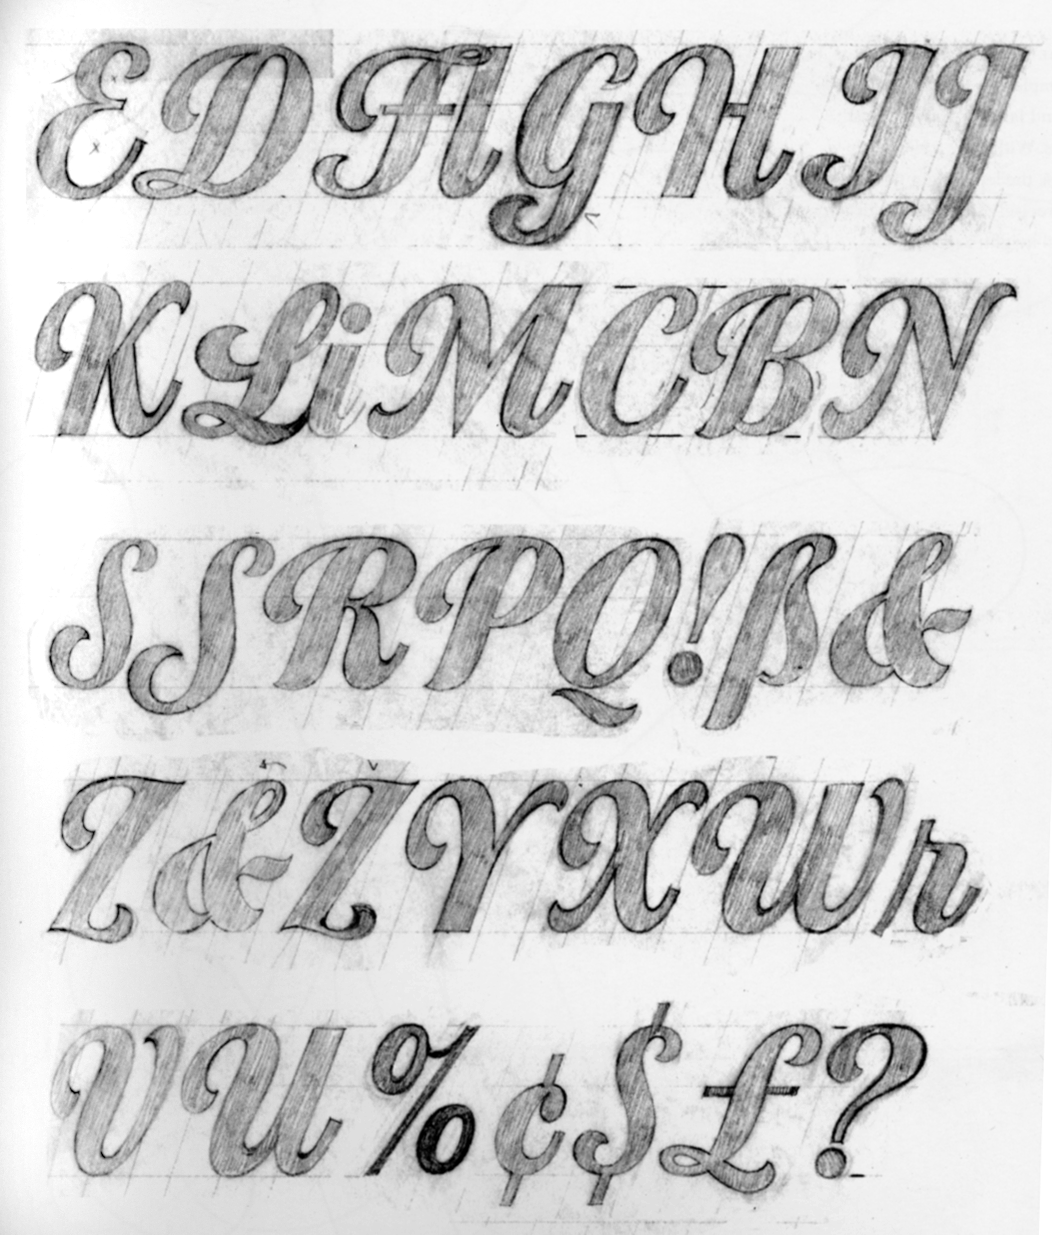 EDAGHIJ
KLiMCBN
SSRPQ!ß&
Z&ŽYXWr
VU%¢$£?